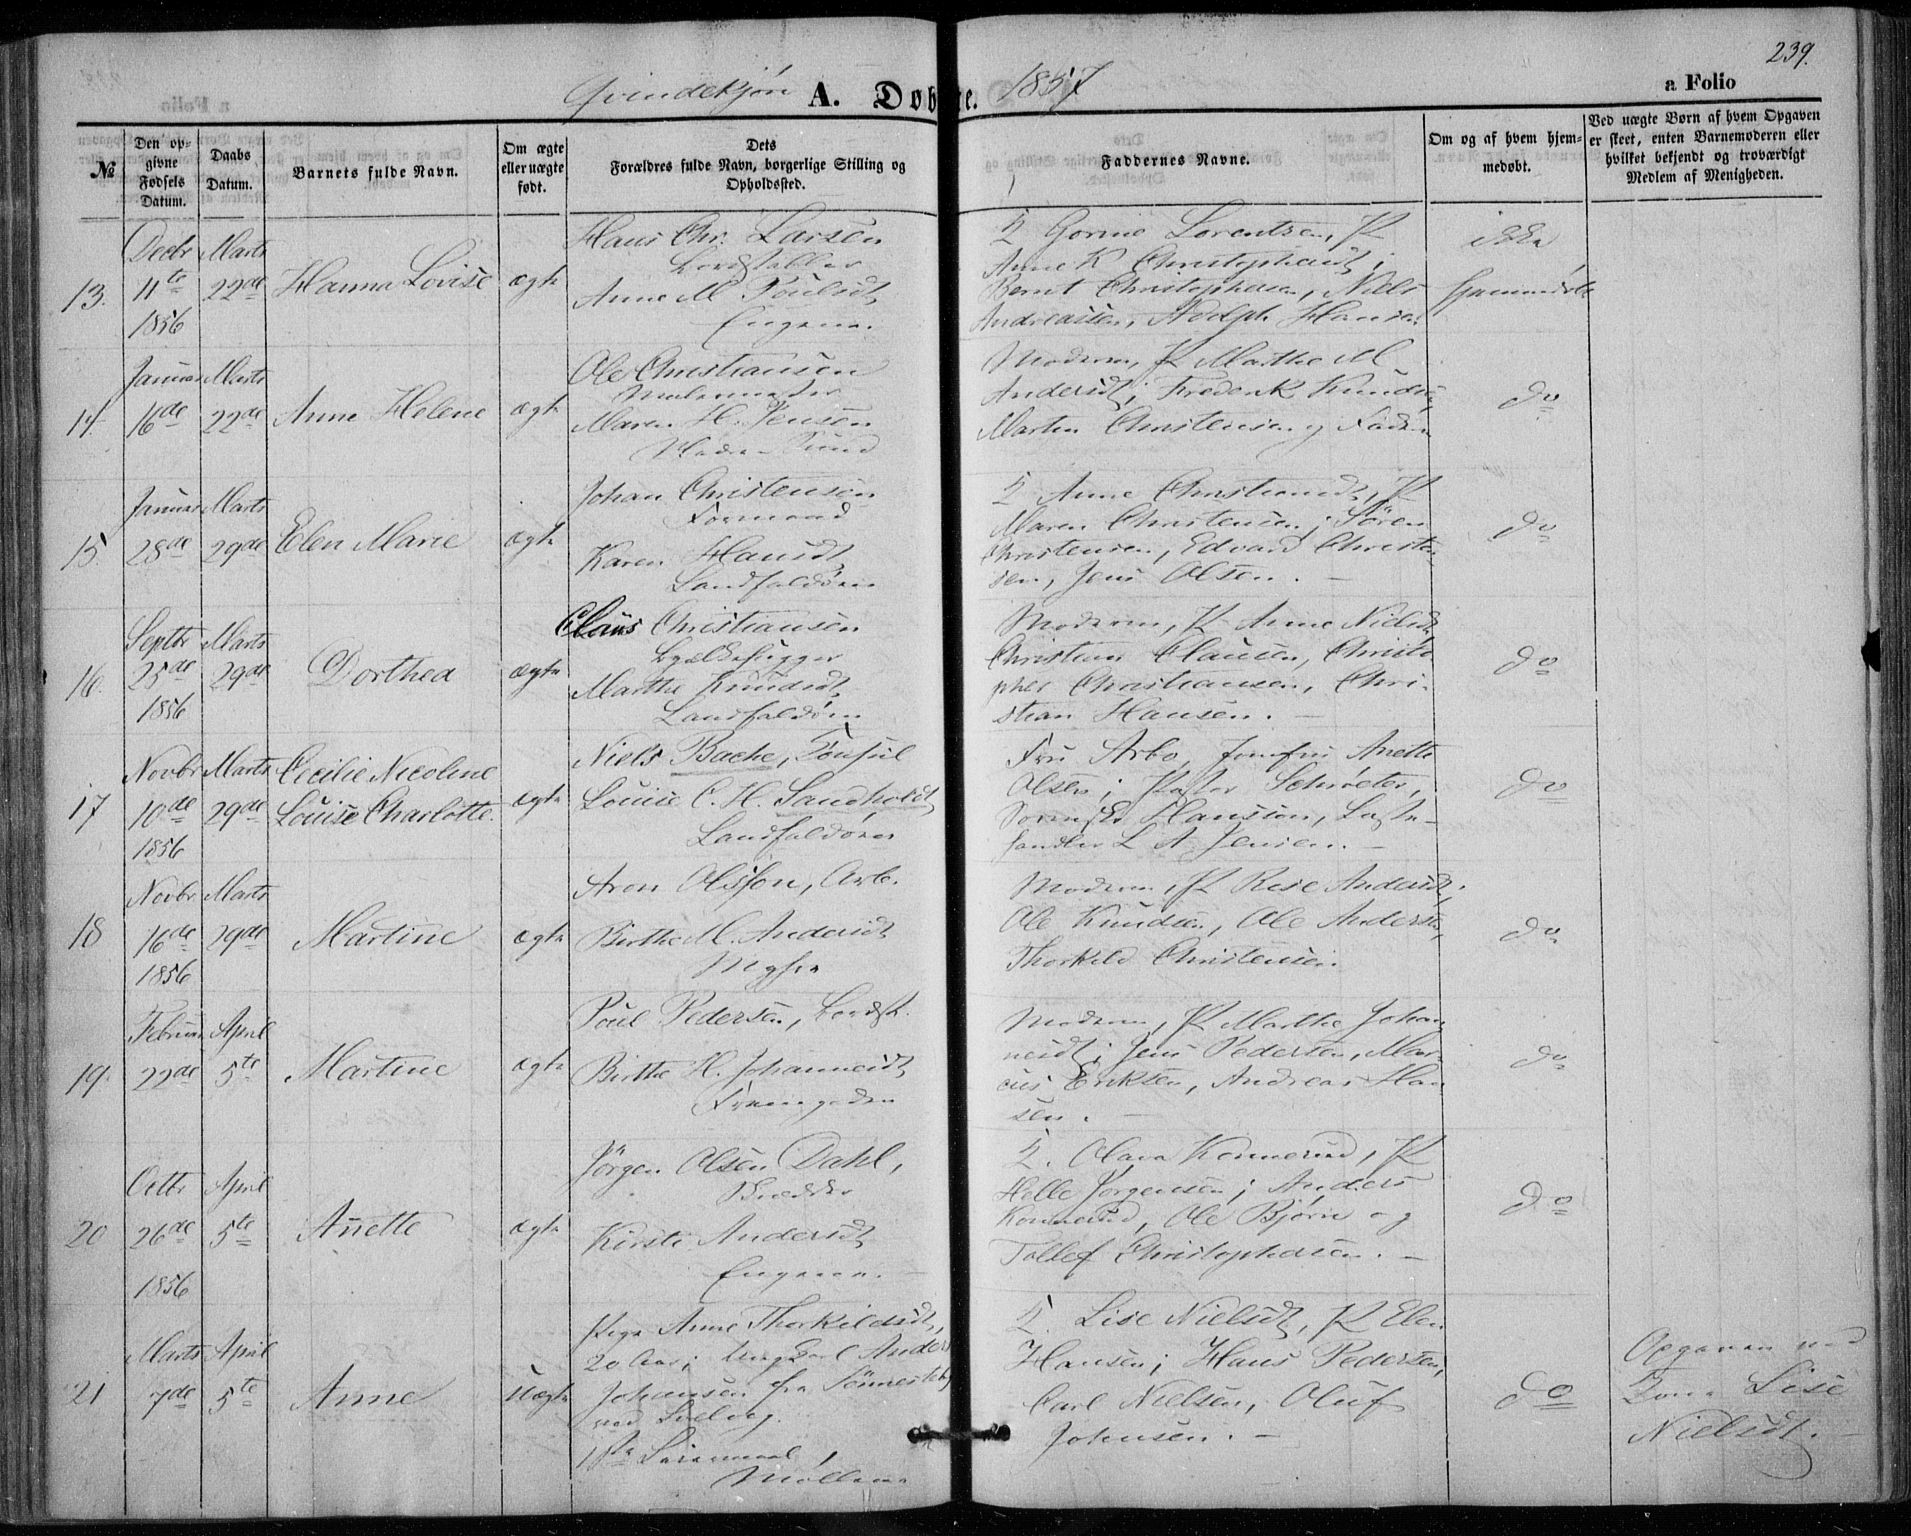 239.
Qvindekjøn A. Døbte. 1857
a Folio
№
Den opgivne Fødsels Datum.
Daabs Datum.
Barnets fulde Navn.
Om ægte eller uægte født.
Dets Forældres fulde Navn, borgerlige Stilling og Opholdssted.
Faddernes Navne.
Om og af hvem hjemmedøbt.
Ved uægte Børn af hvem Opgaven er skeet, enten Barnemoderen eller hvilket bekjendt og troværdigt Medlem af Menigheden.
13. Decbr 11te 1856
Marts 22de
Hanna Lovise
ægte
Hans Chr. Larsen
Anne M. Poulsdt
Engene.
Gorine Lorentsen, P
Anne K Christophersdt;
Bernt Christophersen, Niels
Andreassen, Adolph Hansen
ikke
hjemmedøbt
14. Januar 16de
Marts 22de
Anne Helene
ægte
Ole Christiansen
Malermester
Maren H. Jensen
Moderen, P Marthe M
Andersdt; Frederik Knudsen,
Marten Christensen og Faderen
do
15. Januar 28de
Marts 29de
Elen Marie
ægte
Johan Christensen
Formand
Karen Hansdt
Landfaldøen
K Anne Christiansdt, P
Maren Christensen; Søren
Christensen, Edvard Christen-
sen, Jens Olsen. -
do
16. Septbr 25de 1856
Marts 29de
Dorthea
ægte
Claus Christiansen
Bjælkehugger
Marthe Knudsdt
Landfaldøen
Moderen, P Anne Nielsdt
Christian Clausen, Christo-
pher Christiansen, Chri-
stian Hansen. -
do
17 Novbr 10de 1856
Marts 29de
Cecilie Nicoline
Louise Charlotte.
ægte
Niels Bache, Konsul
Louise C. H. Sandholdt
Landfaldøen
Fru Arbo, Jomfru Anette
Olsen; Pastor Schrøeter,
Hansson, Laste-
handler L A Jensen. -
do
18 Novbr 16de 1856
Marts 29de
Martine
ægte
Aron Olsson, Arb.
Birthe M. Andersdt
Moderen, P Rise Andersdt,
Ole Knudsen, Ole Andersen,
Thorkild Christensen.
do
19. Februar 22de
April 5te
Martine
ægte
Poul Pedersen, Bordst.
Birthe H. Johannesdt
Moderen, P Marthe Johan-
nesdt; Jens Pedersen, Mar-
cus Eriksen, Andreas Han-
sen. -
do
20 Octbr 26de 1856
April 5te
Anette
ægte
Jørgen Olsen Dahl,
Kirste Andersdt
Engene. -
K. Olava Konnerud, P
Helle Jørgensen; Anders
Konnerud, Ole Bjørn og
Tollef Christophersen. -
do
21 Marts 7de
April 5te
Anne
uægte
Pige Anne Thorkildsdt,
20 Aar; Ungkarl Anders
Johansen fra
ved Solverg.
1ste Leiermaal,
Møllene
K. Lise Nielsdt, P Elen
Hansen; Hans Pedersen,
Carl Nielsen, Oluf
Johnsen. -
do
Opgaven ved
Kone Lise
Nielsdt. -